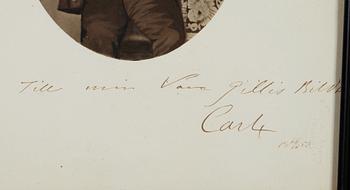 Till min Vän Gillis Bildt
Carl